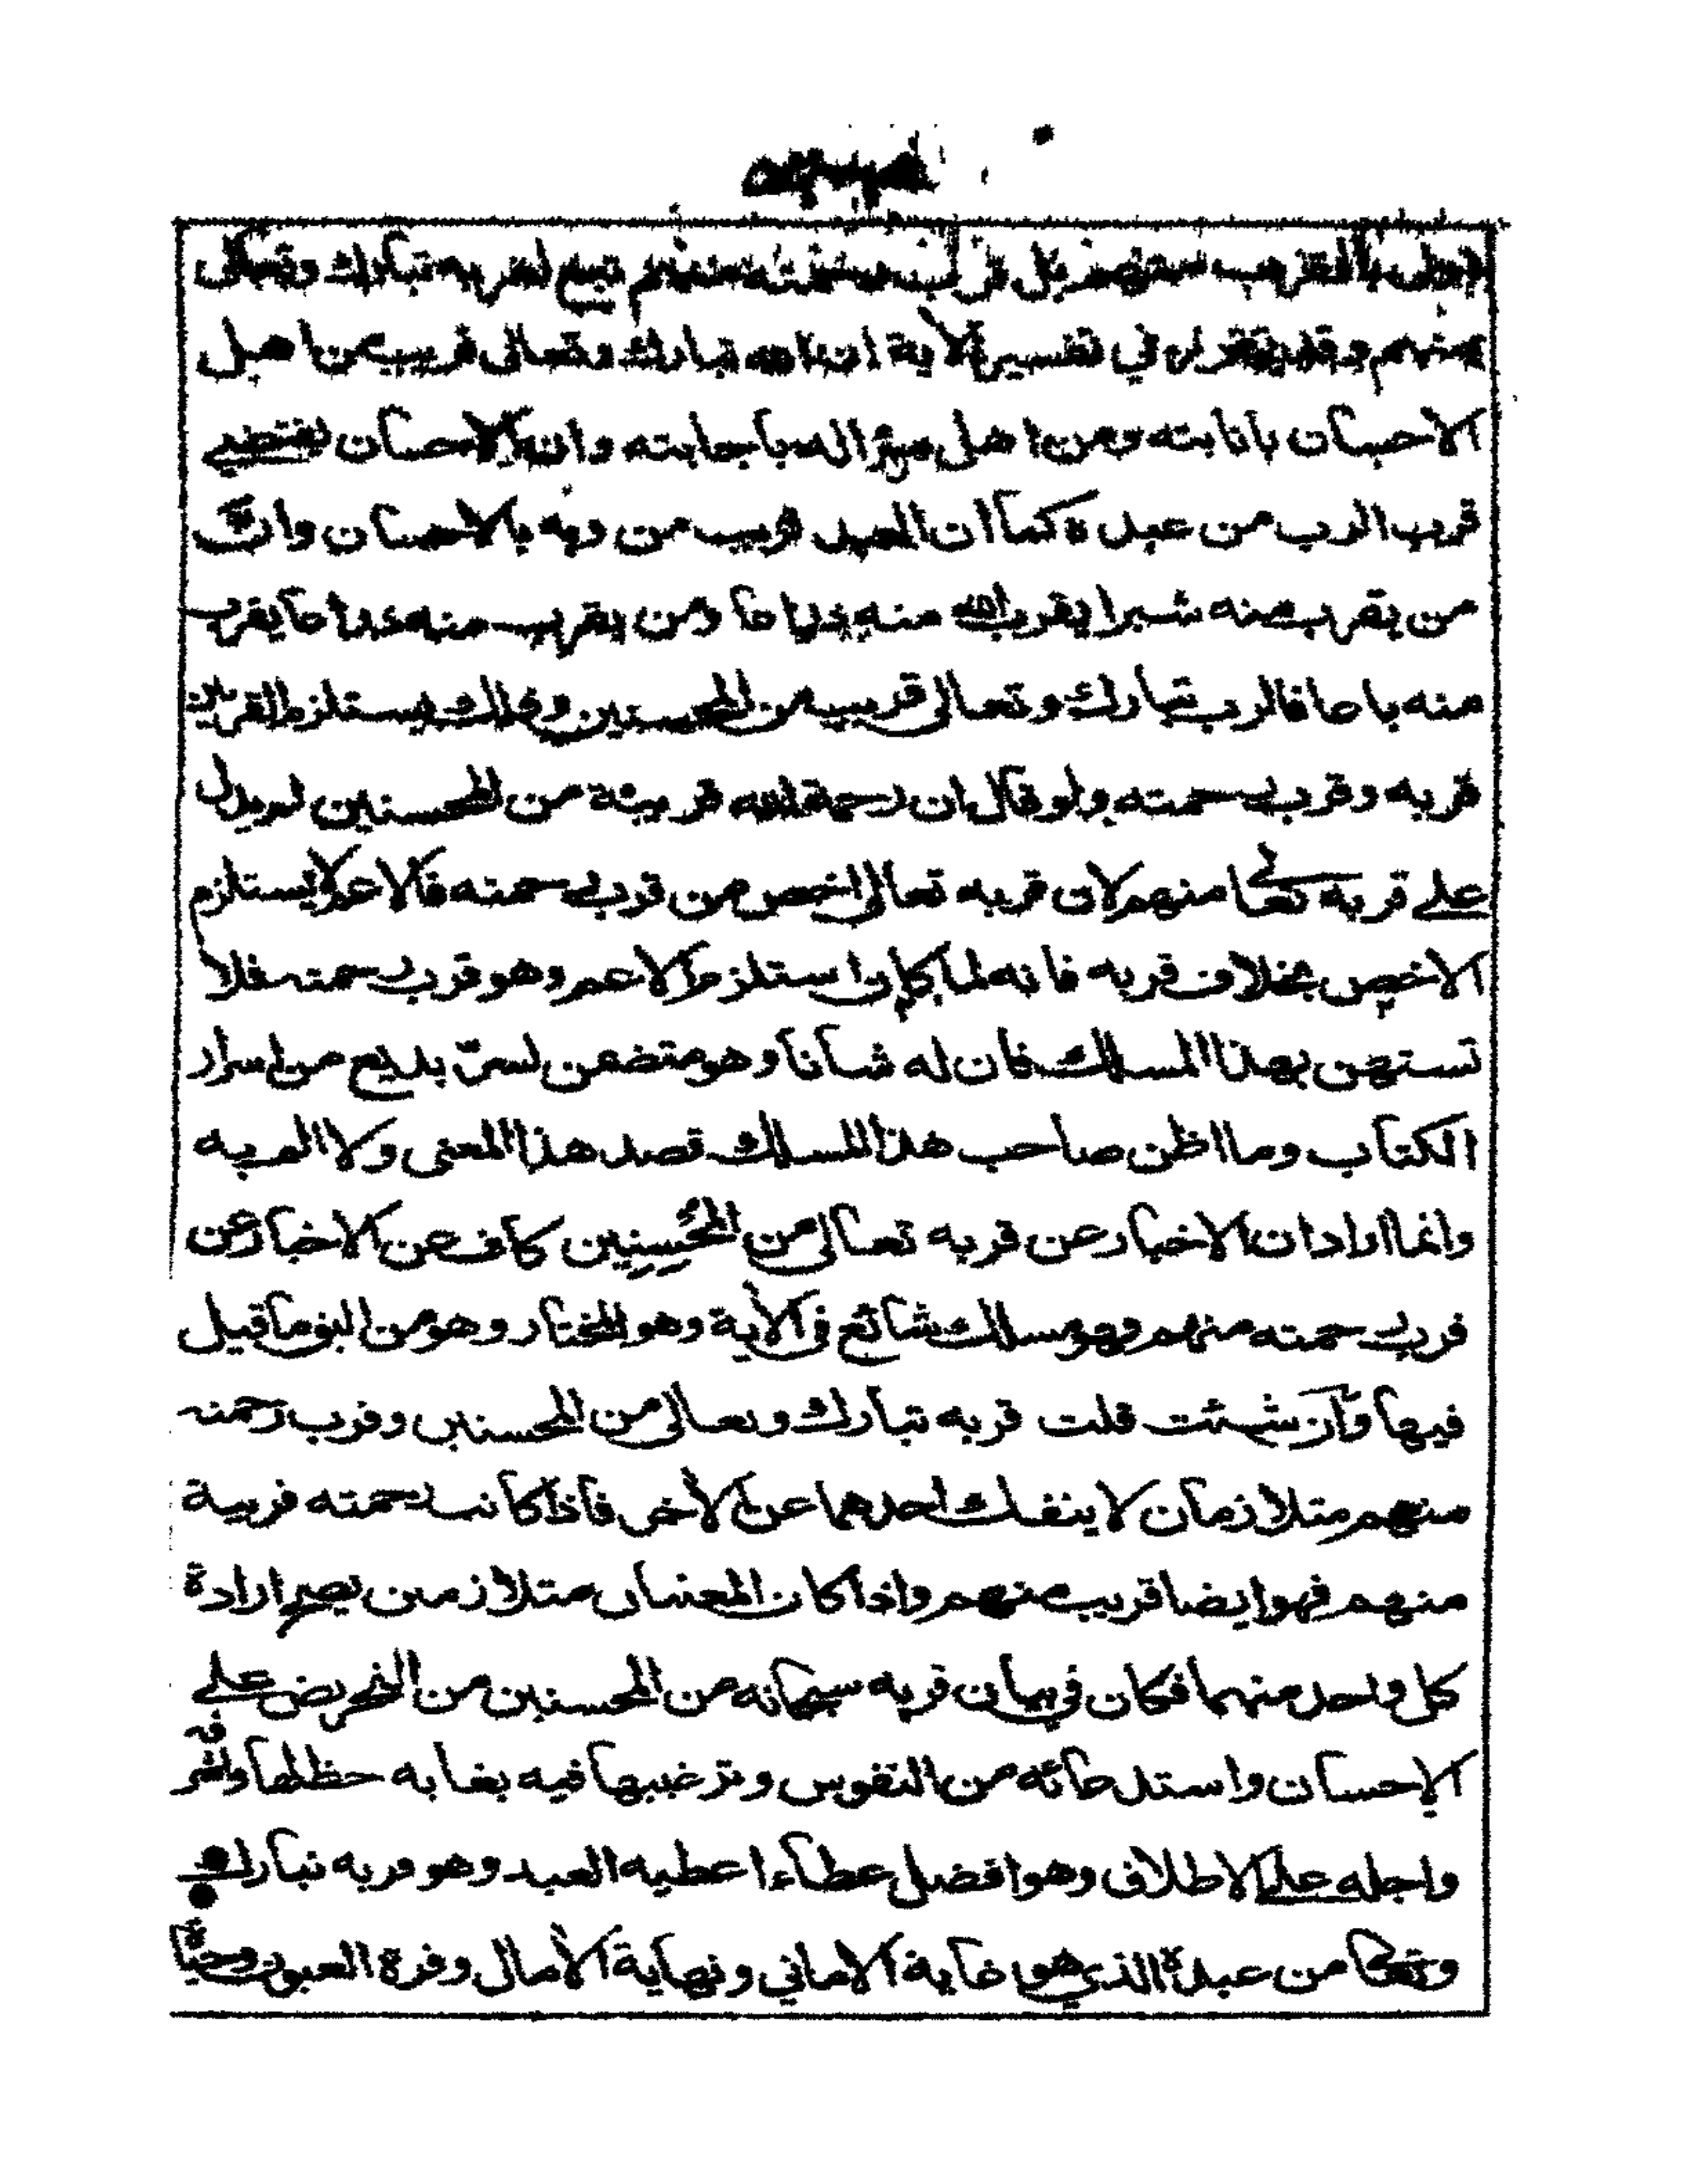 بالقرب منهم بل قرب رحمته منهم تبع لقربه تبارك وتعالى
منهم وقد تقرر في تفسير الآية ان الله تبارك وتعالى قريب من اهل
الاحسان باثابته ومن اهل سؤاله باجابته وان الاحسان يقتضي
قرب الرب من عبده كما ان العبد قريب من ربه بالاحسان وان
من تقرب منه شبرا يقرب الله منه ذراعا ومن يقرب منه ذراعا يقرب
منه باعا فالرب تبارك وتعالى قريب من المحسنين وذلك يستلزم القربين
قربه وقرب رحمته ولو قال ان رحمة الله قريبة من المحسنين لم يدل
على قربه تعالى منهم لان قربه تعالى اخص من قرب رحمته فالاعم لا يستلزم
الاخص بخلاف قربه فانه لما كان استلزم الاعم وهو قرب رحمته فلا
تستهن بهذا المسلك فان له شأنا وهو متضمن لسر بديع من اسرار
الكتاب وما اظن صاحب هذا المسلك قصد هذا المعنى ولا الم به
وانما اراد ان الاخبار عن قربه تعالى من المحسنين كاف عن الاخبار عن
قرب رحمته منهم وهو مسلك شائع في الآية وهو المختار وهو من اليق ما قيل
فيها وان شئت قلت قربه تبارك وتعالى من المحسنين وقرب رحمته
منهم متلازمان لا ينفك احدهما عن الآخر فاذا كانت رحمته قريبة
منهم فهو ايضا قريب منهم واذا كان المعنيان متلازمين يصح ارادة
كل واحد منهما فكان في بيان قربه سبحانه من المحسنين من التحريض على
الاحسان واستدعائه من النفوس وترغيبها فيه بغاية حظ لها واشرفه
واجله على الاطلاق وهو افضل عطاء اعطيه العبد وهو قربه تبارك
وتعالى من عبده الذي هو غاية الاماني ونهاية الآمال وقرة العيون وحياة